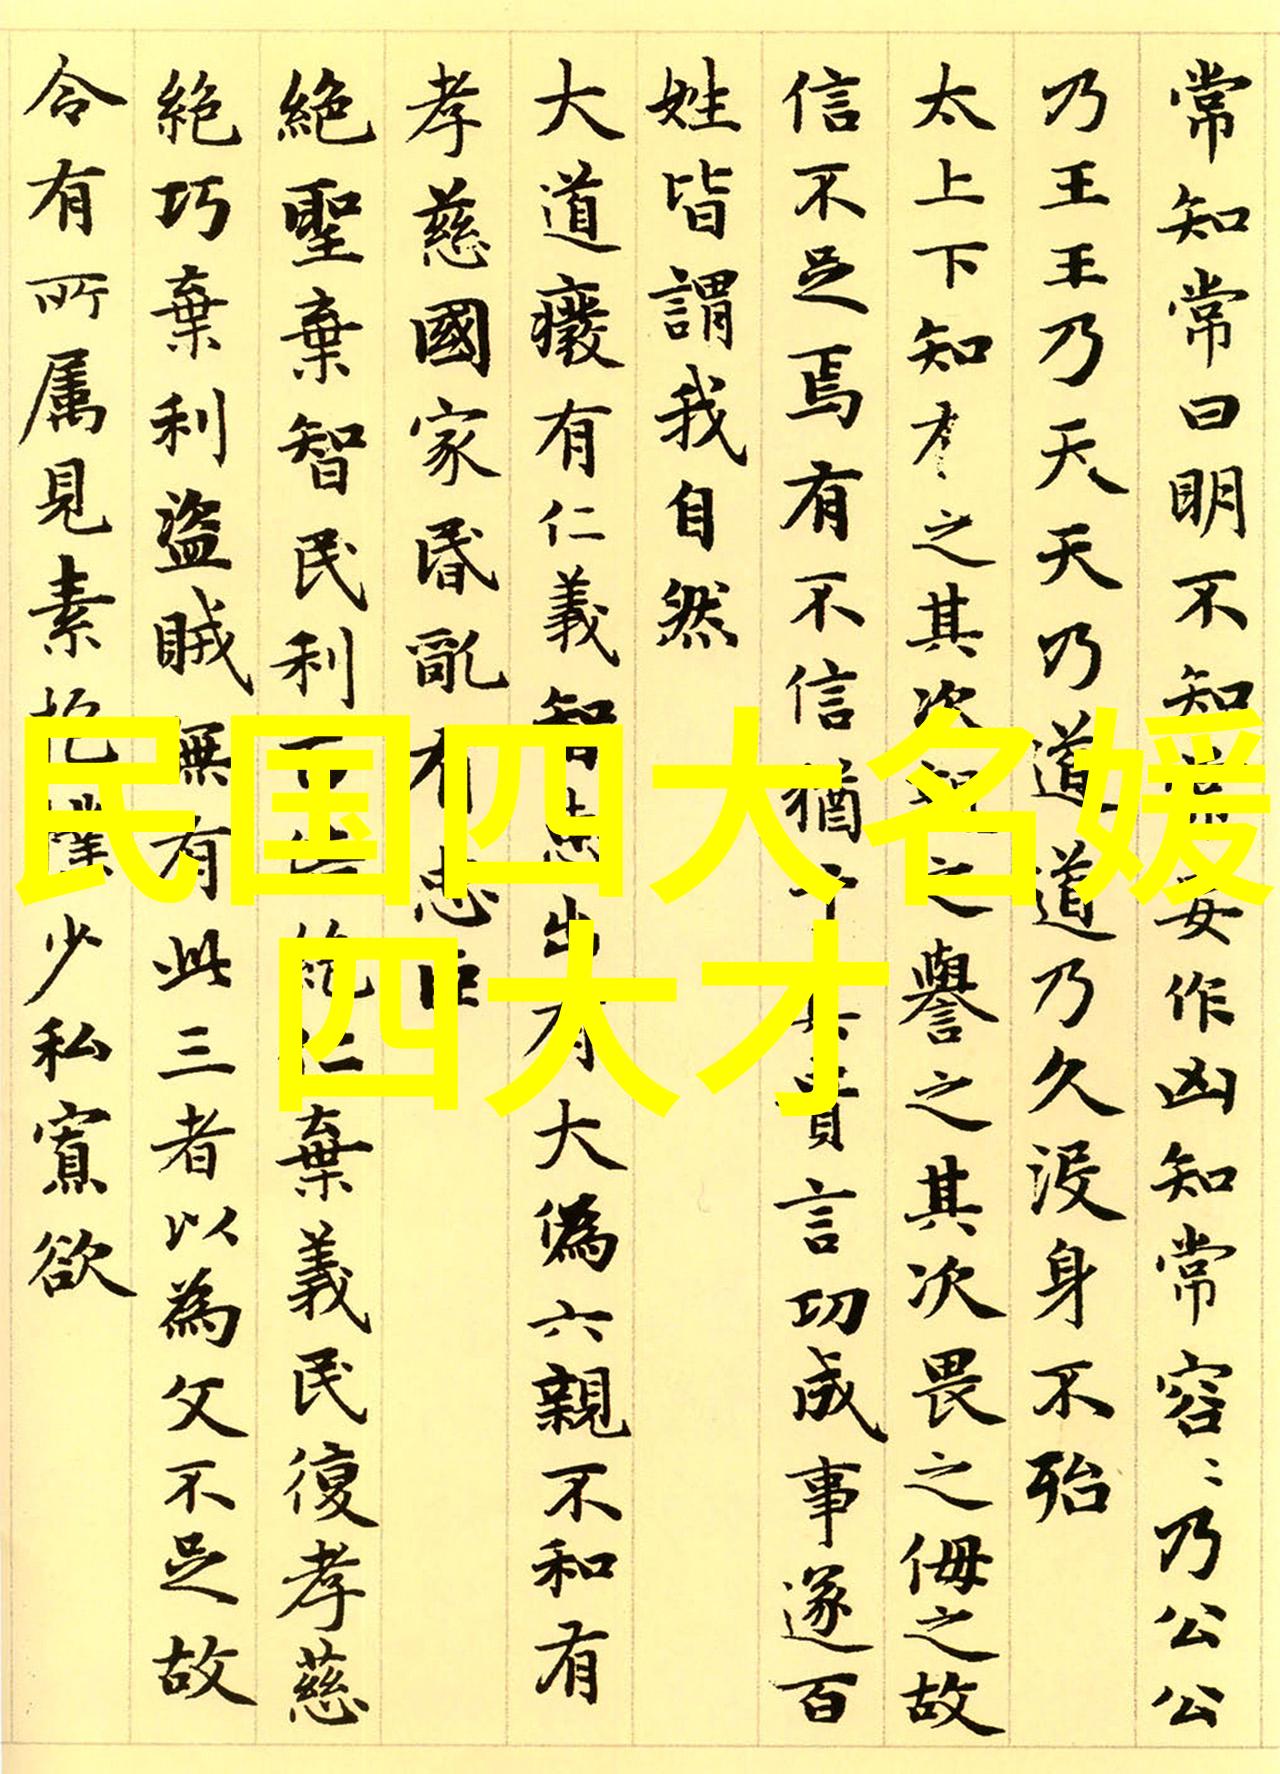 常知常曰明不知常妄作凶知常容〻乃公公
乃王王乃天天乃道道乃久没身不殆
太上下知之其次之譽之其次畏之侮之故
信不足焉有不信猶其貴言功成事遂百
姓皆謂我自然
大道癈有仁義智出有大偽六親不和有
孝慈國家昏亂有忠臣
絶聖棄智民利百絶仁棄義民復孝慈
絶巧棄利盜賊無有此三者以為文不足故
令有所属見素抱樸少私寡欲
民国四大名媛
四大才